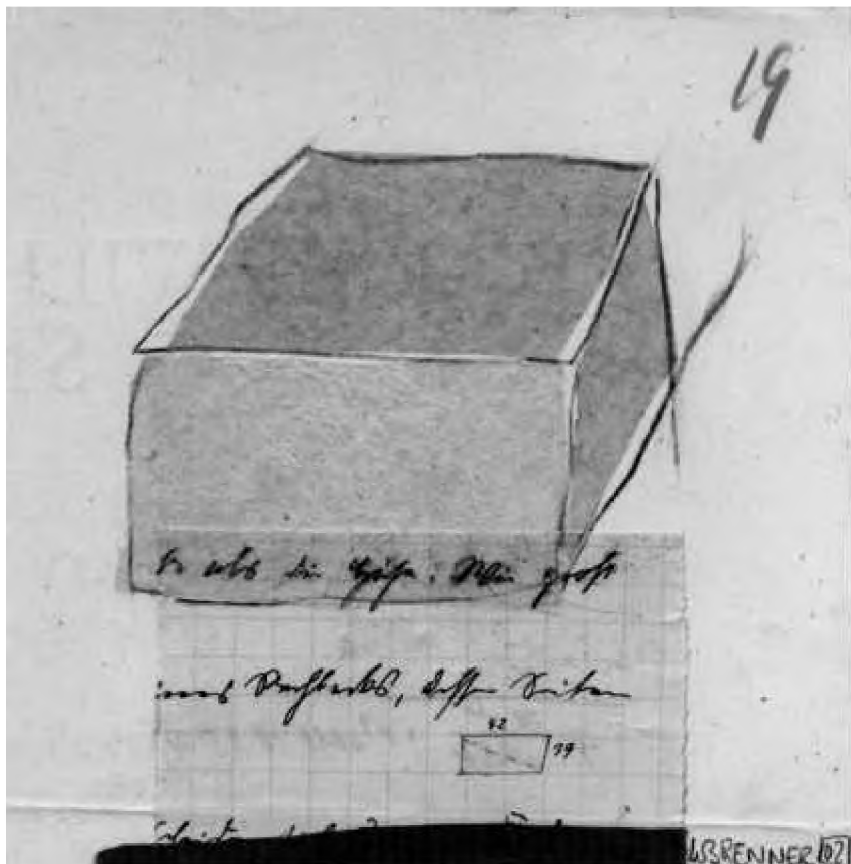 19
als die Höhe. Wie groß
eines Rechtecks, dessen Seiten
42
39
W.BRENNER 02